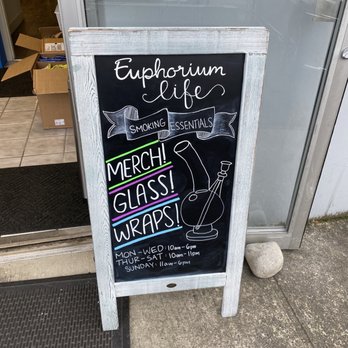 Euphorium
life
SMOKING ESSENTIALS
MERCH!
GLASS!
WRAPS!
MON-WED: 10AM-6PM
THUR-SAT: 10AM-11PM
SUNDAY: 11AM-6PM